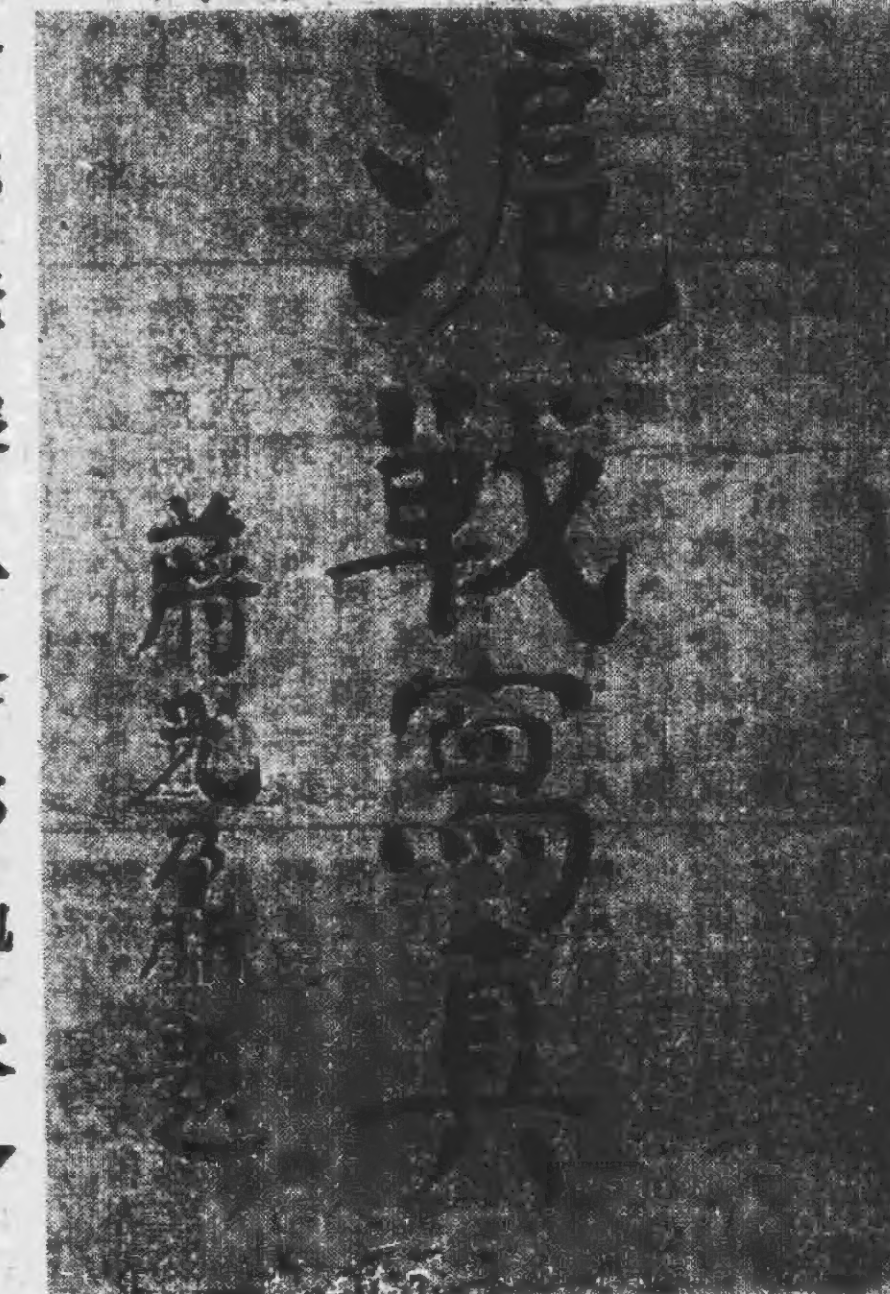 滬戰寫真
蔣光鼐